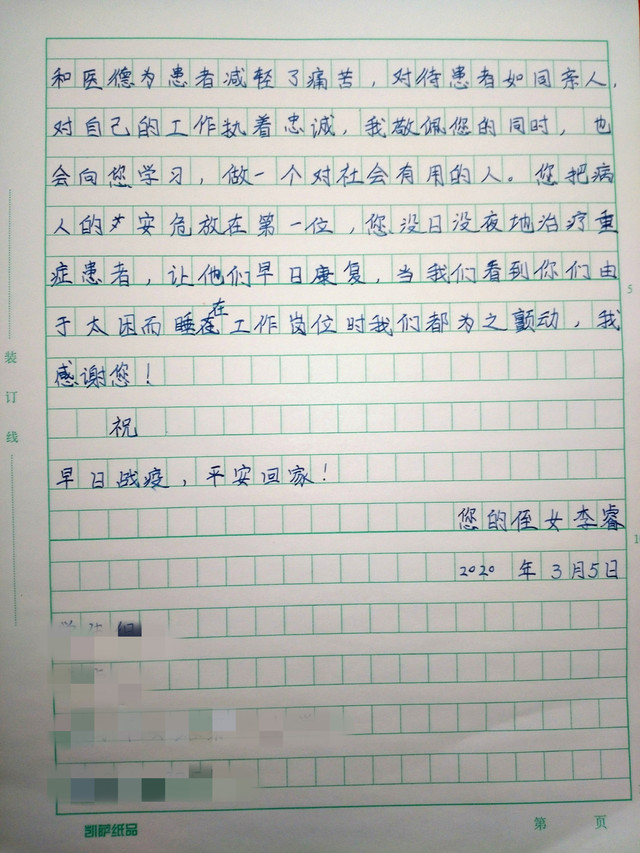 和医德为患者减轻了痛苦，对待患者如同亲人，
对自己的工作执着忠诚，我敬佩您的同时，也
会向您学习，做一个对社会有用的人。您把病
人的安危放在第一位，您没日没夜地治疗重
症患者，让他们早日康复，当我们看到你们由
于太困而睡在工作岗位时我们都为之颤动，我
感谢您！
祝
早日战疫，平安回家！
您的侄女李睿
2020 年 3月5日
5
10
装订线
凯萨纸品
第 页